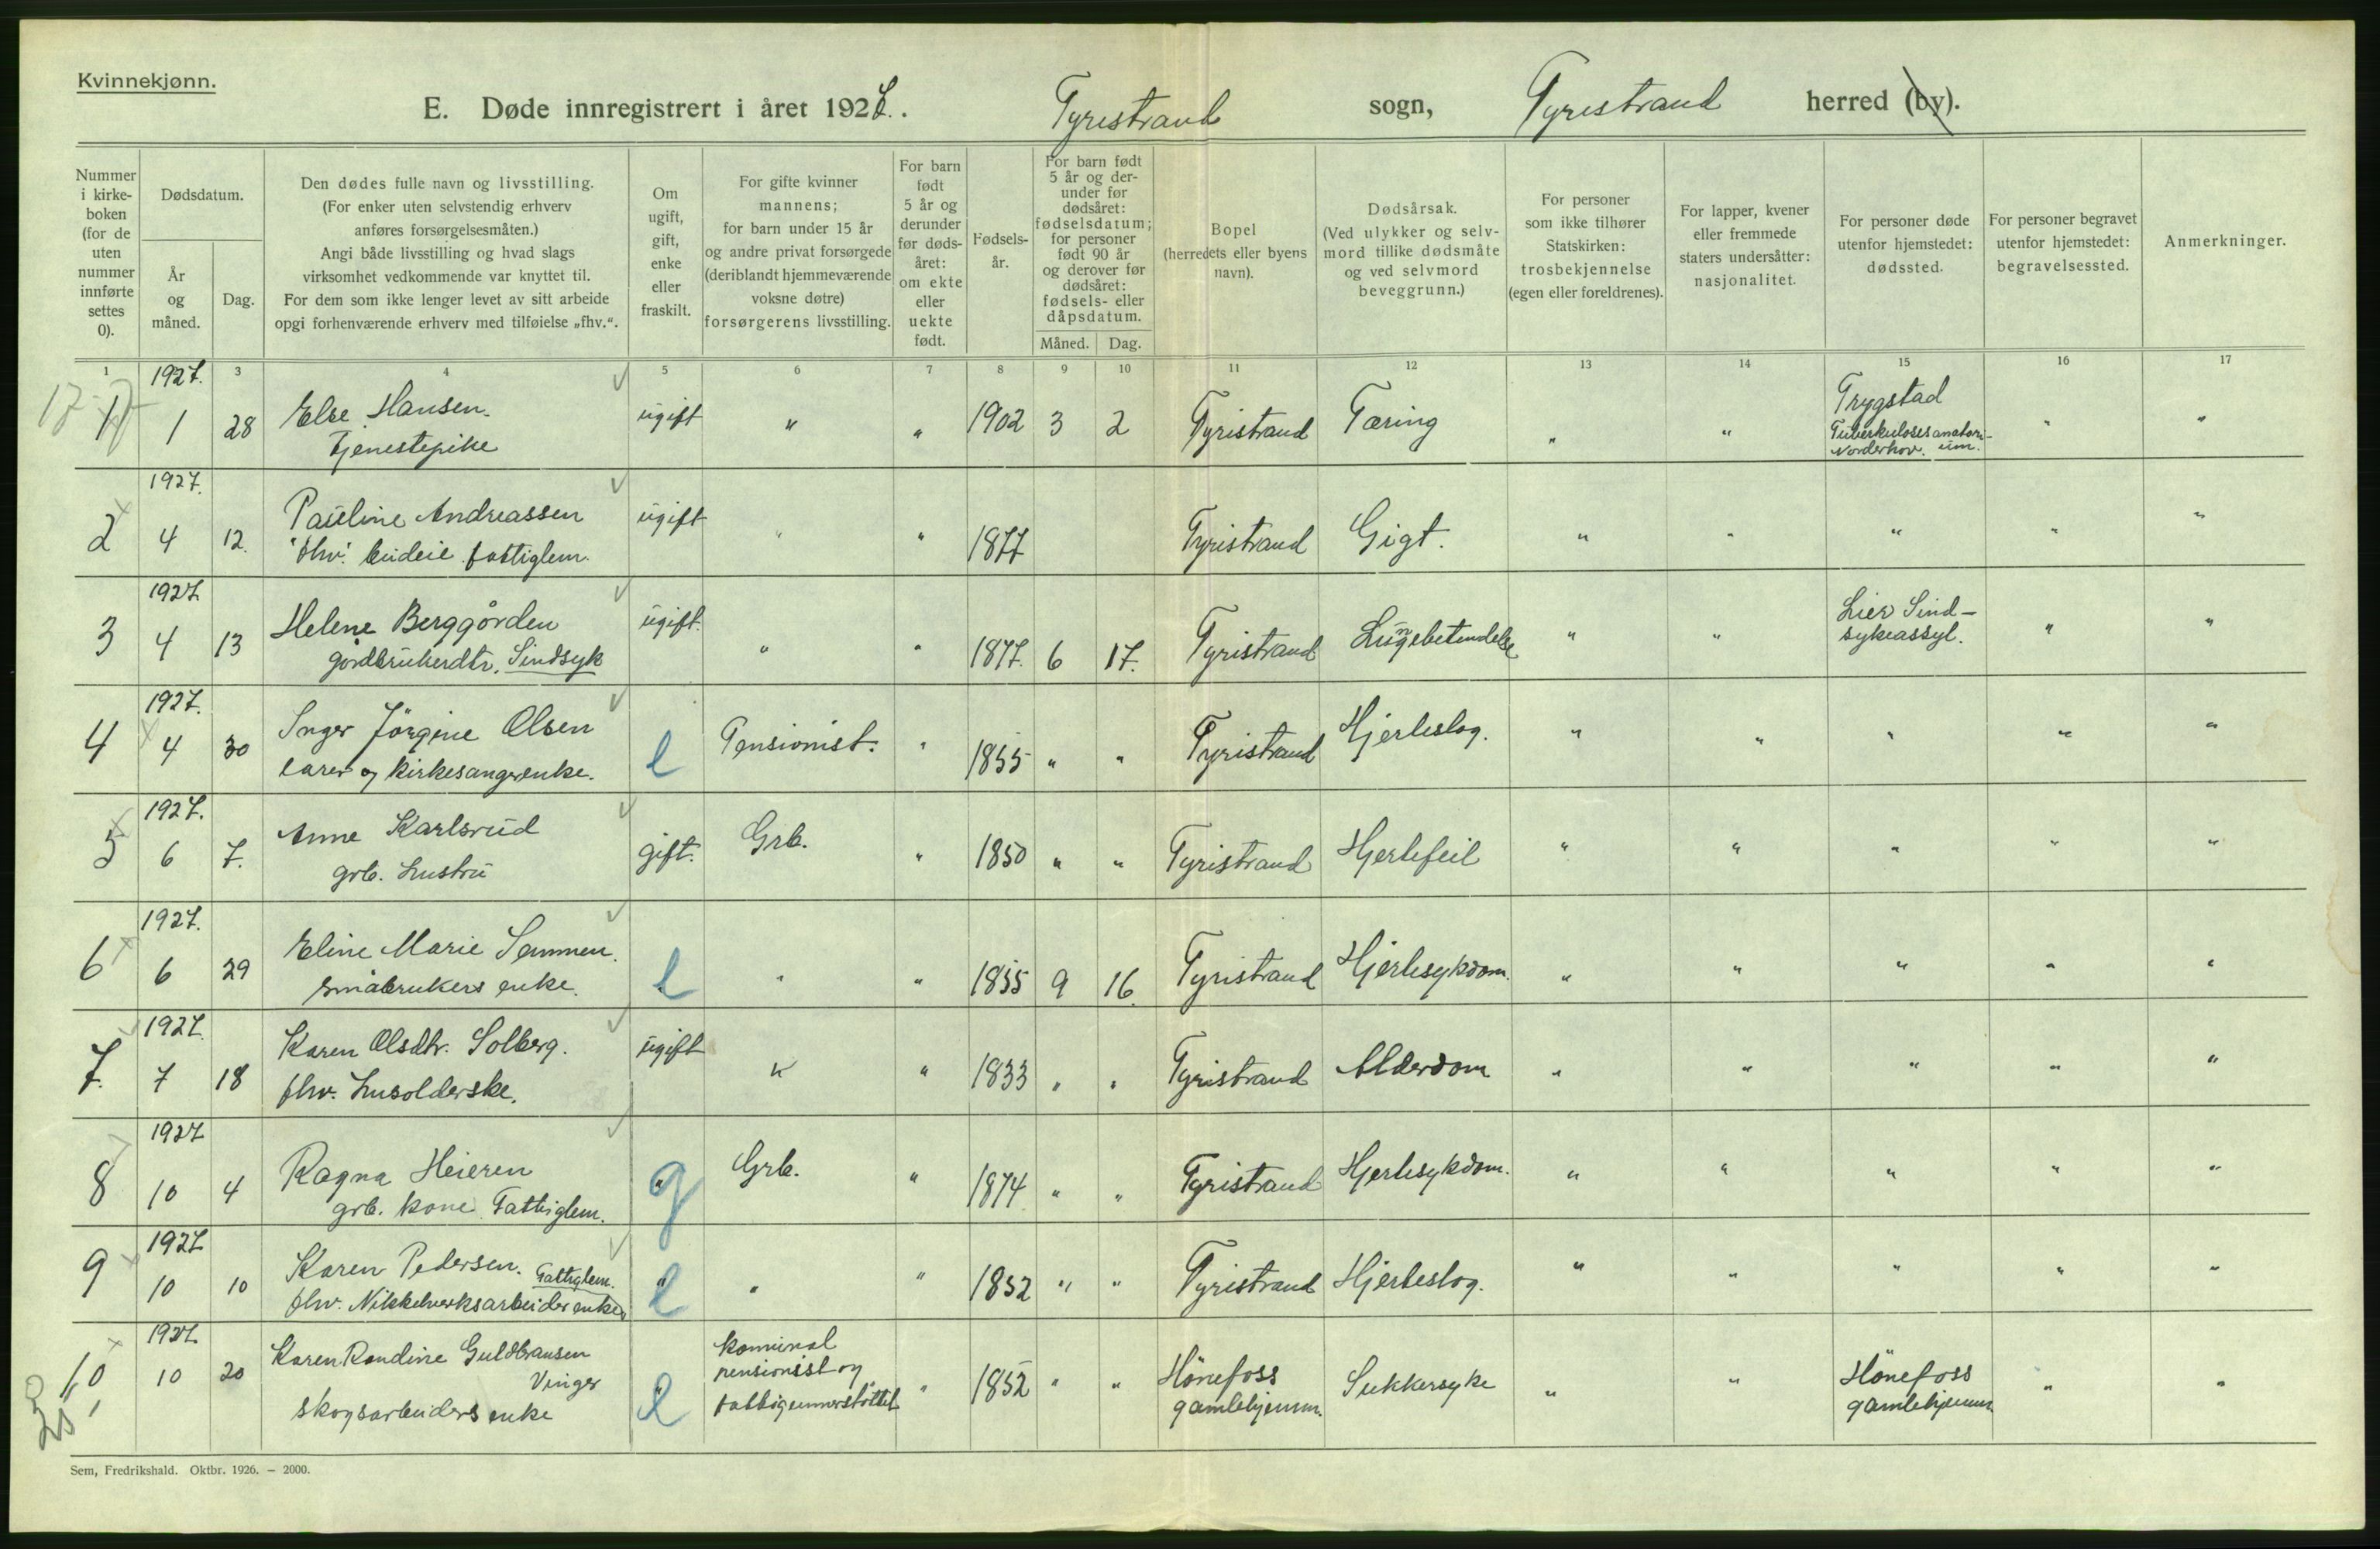 Kvinnekjønn.
E. Døde innregistrert i året 1927. Tyristrand sogn, Tyristrand herred (by).
Nummer i kirke-boken (for de uten nummer innførte settes 0).
Dødsdatum.
År og måned.
Dag.
Den dødes fulle navn og livsstilling.
(For enker uten selvstendig erhverv
anføres forsørgelsesmåten.)
Angi både livsstilling og hvad slags
virksomhet vedkommende var knyttet til.
For dem som ikke lenger levet av sitt arbeide
opgi forhenværende erhverv med tilføielse „fhv.“.
Om ugift, gift, enke eller fraskilt.
For gifte kvinner
mannens;
for barn under 15 år
og andre privat forsørgede
(deriblandt hjemmeværende
voksne døtre)
forsørgerens livsstilling.
For barn født 5 år og derunder før døds-året: om ekte eller uekte født.
Fødsels-år.
For barn født 5 år og der-under før dødsåret: fødselsdatum; for personer født 90 år og derover før dødsåret: fødsels- eller dåpsdatum.
Måned. Dag.
Bopel
(herredets eller byens
navn).
Dødsårsak.
(Ved ulykker og selv-
mord tillike dødsmåte
og ved selvmord
beveggrunn.)
For personer
som ikke tilhører
Statskirken:
trosbekjennelse
(egen eller foreldrenes).
For lapper, kvener
eller fremmede
staters undersåtter:
nasjonalitet.
For personer døde
utenfor hjemstedet:
dødssted.
For personer begravet
utenfor hjemstedet:
begravelsessted.
Anmerkninger.
1 3 4 5 6 7 8 9 10 11 12 13 14 15 16 17
1927.
1 1 28 Else Hansen. ugift " " 1902 3 2 Tyristrand Tæring " " Trygstad " "
Tjenestepike Tuberkulosesanatori-
Norderhov. um.
1927.
2 4 12. Pauline Andreassen ugift " " 1877 Tyristrand Gigt. " " " " "
"fhv." budeie fattiglem.
1927
3 4 13 Helene Berggården ugift. " " 1877. 6 17. Tyristrand Lungebetendelse " " Lier Sind- " "
gårdbrukerdtr. Sindsyk sykeassyl.
1927.
4 4 30 Inger Jörgine Olsen e Pensionist. " 1855 " " Tyristrand Hjerteslag. " " " " "
lærer og kirkesangerenke.
1927.
5 6 7. Anne Karlsrud gift. Grb. " 1850 " " Tyristrand Hjertefeil " " " " "
grb. hustru
1927.
6 6 29 Eline Marie Semmen. e " " 1855 9 16. Tyristrand Hjertesykdom. " " " " "
småbrukers enke.
1927.
7. 7 18 Karen Olsdtr. Solberg. ugift " " 1833 " " Tyristrand Alderdom " " " " "
fhv. husolderske.
1927
8 10 4 Ragna Heieren g Grb. " 1874 " " Tyristrand Hjertesykdom. " " " " "
grb. kone Fattiglem.
1927
9 10 10 Karen Pedersen. Fattiglem. e " " 1852 " " Tyristrand Hjerteslag. " " " " "
fhv. Nikkelverksarbeider enke
1927.
10 10 20 Karen Randine Guldbransen e komunal " 1852 " " Hönefoss Sukkersyke " " Hönefoss " "
Vinger pensionist og gamlehjem. gamlehjem
skogsarbeiders enke fattigunnerstöttet
Sem, Fredrikshald. Oktbr. 1926. – 2000.